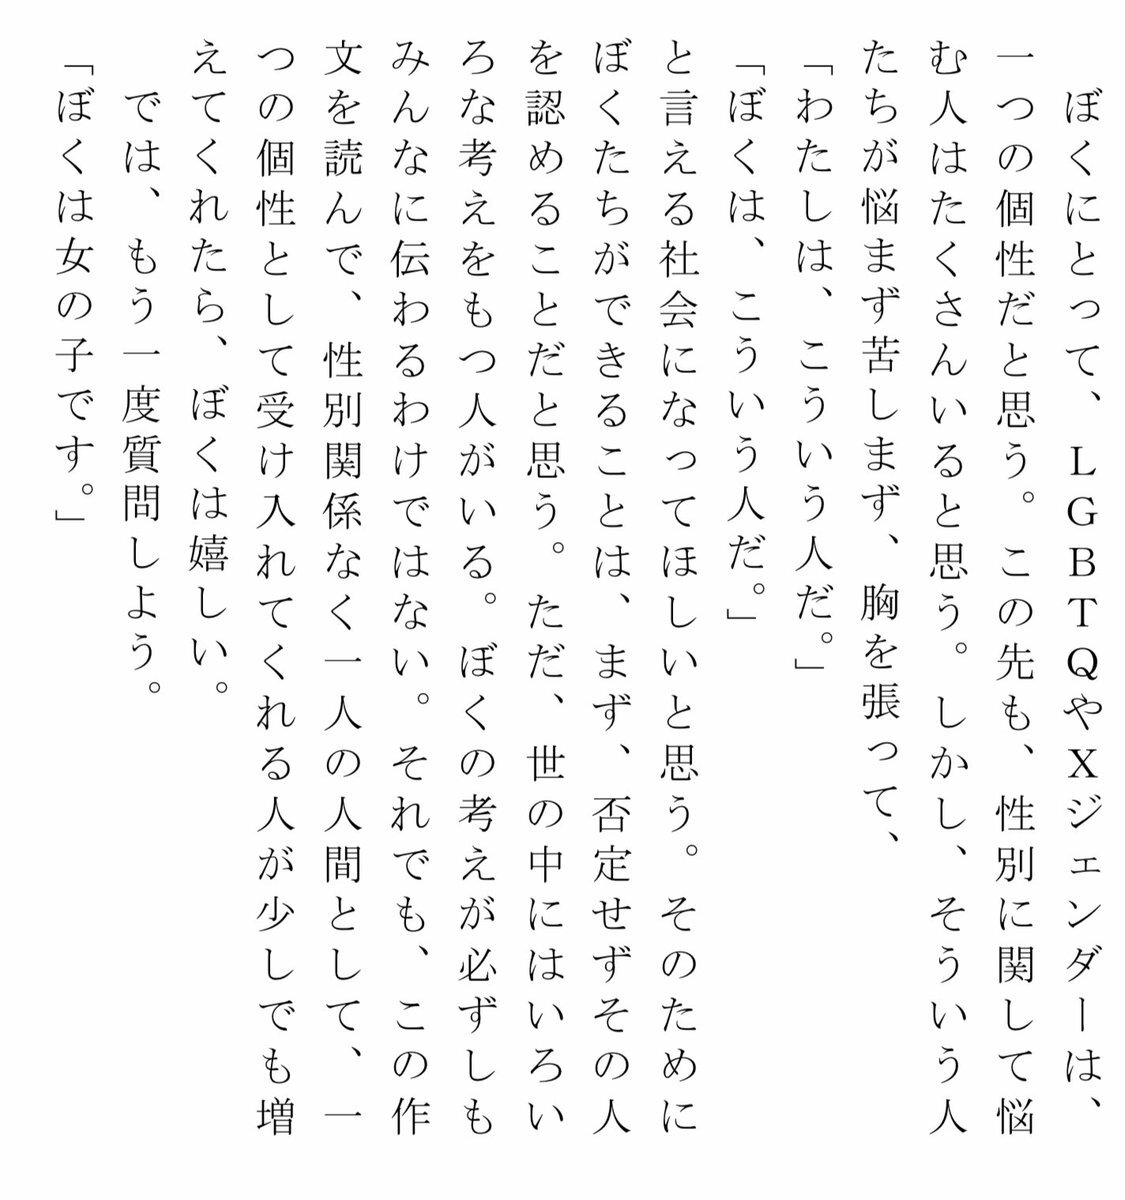 ぼくにとって、LGBTQやXジェンダーは、
一つの個性だと思う。この先も、性別に関して悩
む人はたくさんいると思う。しかし、そういう人
たちが悩まず苦しまず、胸を張って、
「わたしは、こういう人だ。」
「ぼくは、こういう人だ。」
と言える社会になってほしいと思う。そのために
ぼくたちができることは、まず、否定せずその人
を認めることだと思う。ただ、世の中にはいろい
ろな考えをもつ人がいる。ぼくの考えが必ずしも
みんなに伝わるわけではない。それでも、この作
文を読んで、性別関係なく一人の人間として、一
つの個性として受け入れてくれる人が少しでも増
えてくれたら、ぼくは嬉しい。
では、もう一度質問しよう。
「ぼくは女の子です。」